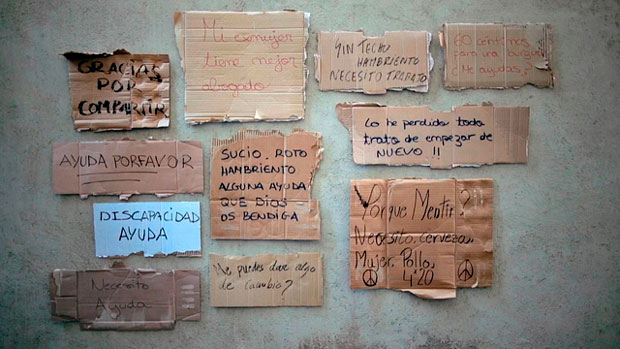 GRACIAS
POR
COMPARTIR
Mi exmujer
tiene mejor
abogado
SIN TECHO
HAMBRIENTO
NECESITO TRABAJO
60 centimos
para una burguer
¿Me ayudas?
Lo he perdido todo
trato de empezar de
NUEVO !!
AYUDA PORFAVOR
SUCIO. ROTO
HAMBRIENTO
ALGUNA AYUDA
QUE DIOS
OS BENDIGA
DISCAPACIDAD
AYUDA
¿Porque Mentir?
Necesito. Cerveza.
Mujer. Pollo.
4:20
Necesito
Ayuda
Me puedes dar algo
de cambio?